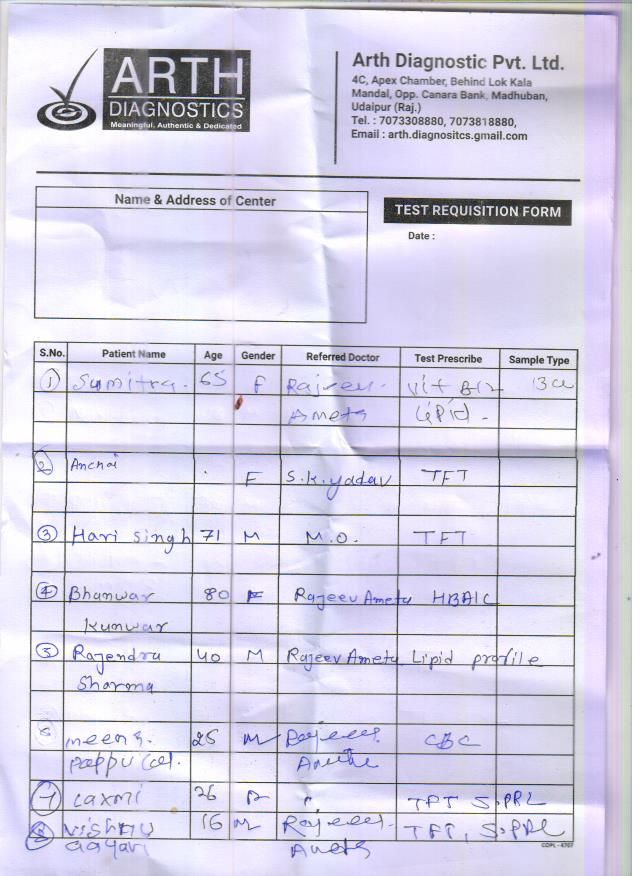 ARTH
DIAGNOSTICS
Meaningful, Authentic & Dedicated
Arth Diagnostic Pvt. Ltd.
4C, Apex Chamber, Behind Lok Kala
Mandal, Opp. Canara Bank, Madhuban,
Udaipur (Raj.)
Tel. : 7073308880, 7073818880,
Email : arth.diagnositcs.gmail.com
Name & Address of Center
TEST REQUISITION FORM
Date :
S.No. Patient Name Age Gender Referred Doctor Test Prescribe Sample Type
1 Sumitra. 65 F Rajeev Vit B12
Ameta Lipid
2 Anchai F S.K.yadav TFT
3 Hari Singh 71 M M.O. TFT
4 Bhanwar 80 F Rajeev Ameta HBAIC
Kunwar
5 Rajendra 40 M Rajeev Ameta Lipid profile
Sharma
6 meena. 25 M Rajeev CBC
pappu Ameta
7 Laxmi 26 " TFT S.PRL
8 Vishnu 16 M Rajeev TFT, S.PRL
Ameta
COPL - 4707